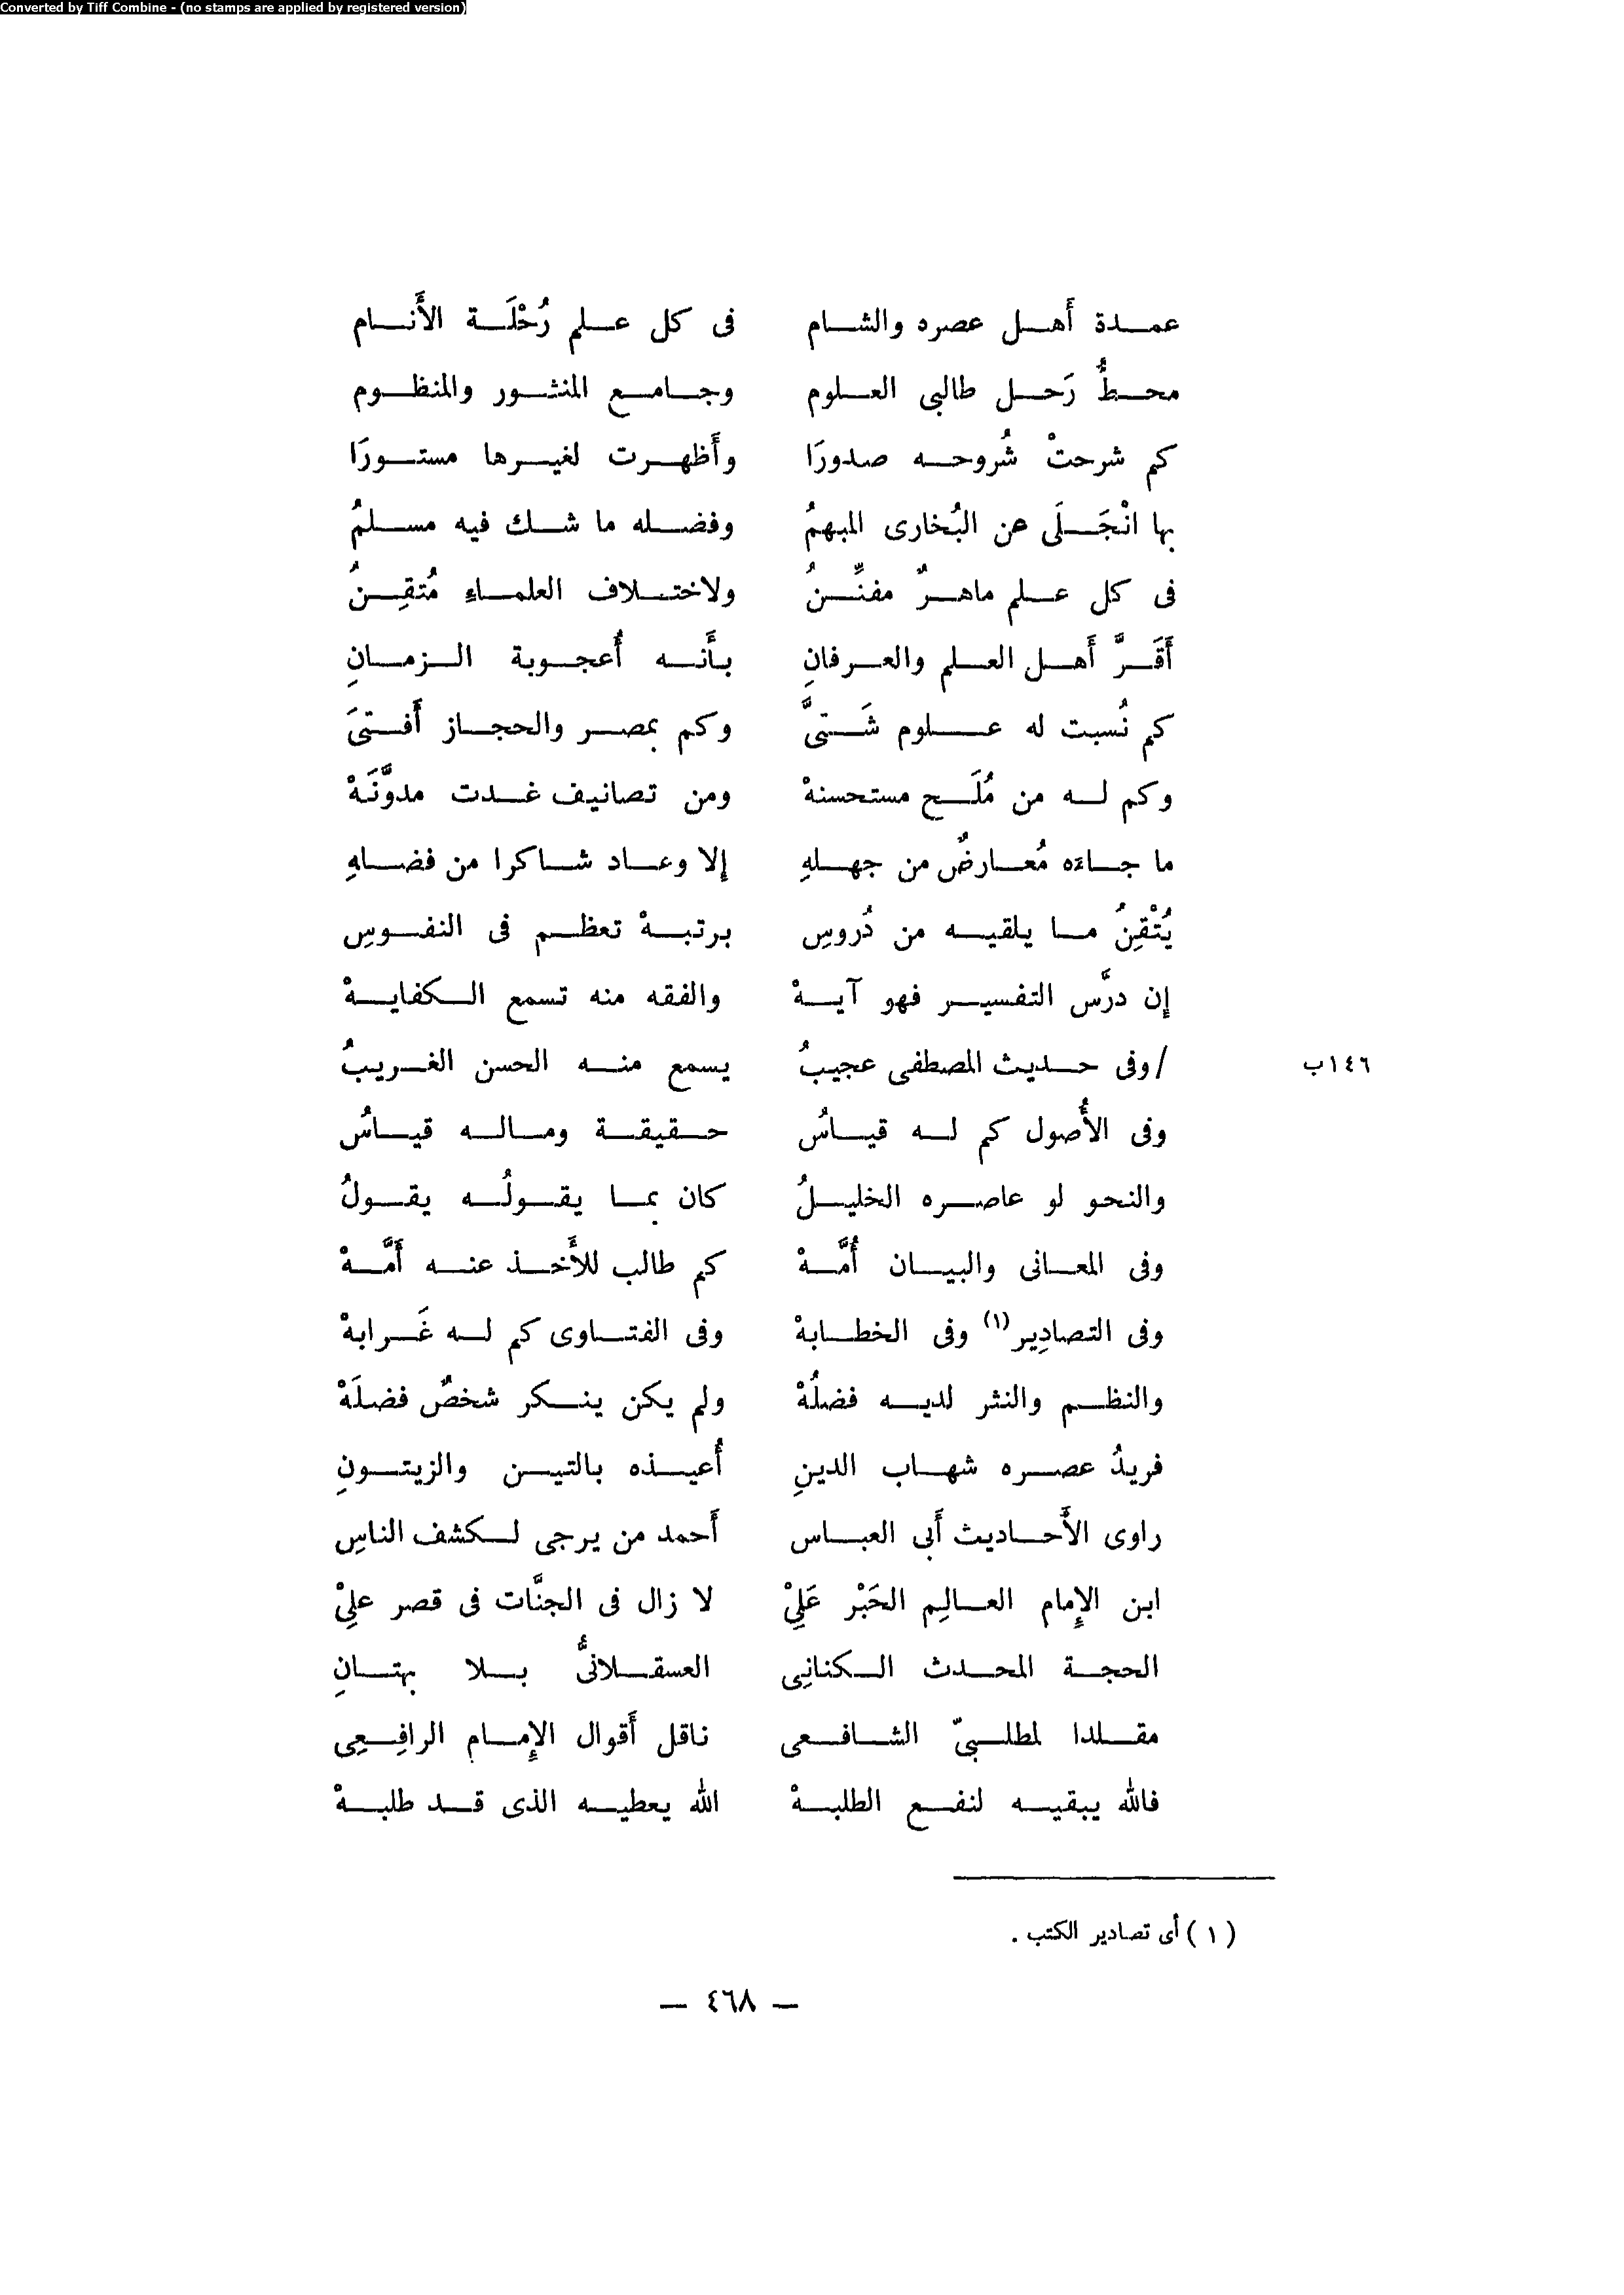 Converted by Tiff Combine - (no stamps are applied by registered version)
عمدة أَهل عصره والشام فى كل علم رُحْلَة الأَنام
محطُّ رَحل طالبى العلوم وجامع المنثور والمنظوم
كم شرحتْ شُروحه صدورَا وأَظهرت لغيرها مستورَا
بها انْجَلَى عن البُخارى المبهمُ وفضله ما شك فيه مسلمُ
فى كل علم ماهرٌ مفنِّنُ ولاختلاف العلماءِ مُتقِنُ
أَقَرَّ أَهل العلم والعرفانِ بأَنه أُعجوبة الزمانِ
كم نُسبت له علوم شَتىَّ وكم بمصر والحجاز أَفتىَ
وكم له من مُلَح مستحسنهْ ومن تصانيف غدت مدوَّنَهْ
ما جاءَه مُعارضٌ من جهلهِ إلا وعاد شاكرا من فضلهِ
يُتْقِنُ ما يلقيه من دُروسِ برتبهْ تعظم فى النفوسِ
إن درَّس التفسير فهو آيهْ والفقه منه تسمع الكفايهْ
/ وفى حديث المصطفى عجيبُ يسمع منه الحسن الغريبُ ١٤٦ب
وفى الأُصول كم له قياسُ حقيقة وماله قياسُ
والنحو لو عاصره الخليلُ كان بما يقولُه يقولُ
وفى المعانى والبيان أُمَّهْ كم طالب للأَخذ عنه أَمَّهْ
وفى التصادِير(١) وفى الخطابهْ وفى الفتاوى كم له غَرابهْ
والنظم والنثر لديه فضلُهْ ولم يكن ينكر شخصٌ فضلَهْ
فريدُ عصره شهاب الدينِ أُعيذه بالتين والزيتونِ
راوى الأَحاديث أَبى العباس أَحمد من يرجى لكشف الناسِ
ابن الإِمام العالِم الحَبْر عَلِيْ لا زال فى الجنَّات فى قصر علِيْ
الحجة المحدث الكنانِى العسقلانىُّ بلا بهتانِ
مقلدا لمطلبىّ الشافعى ناقل أَقوال الإِمام الرافِعِى
فالله يبقيه لنفع الطلبهْ الله يعطيه الذى قد طلبهْ
(١) أى تصادير الكتب .
— ٤٦٨ —